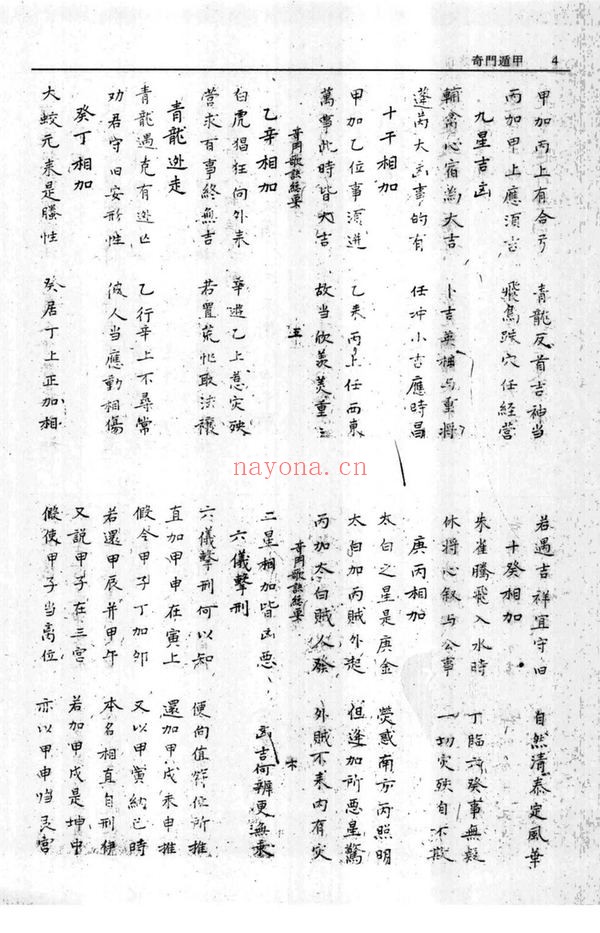 奇門遁甲 4
甲加丙上有合亏 青龍反首吉神当
丙加甲上應須吉 飛鳥跌穴任經营
九星吉凶
輔禽心宿為大吉 卜吉英柱与重将
蓬芮大凶事的有 任冲小吉應時昌
十干相加
甲加乙位事須進 乙来丙上任西東
萬事此時皆大吉 故当欣羨美重三
奇門歌訣総要 五
乙辛相加
白虎猖狂向外来 華遊乙上惹灾殃
营求百事終無吉 若置荒忙取法禳
青龍逃走
青龍遇克有逃亡 乙行辛上不尋常
劝君守旧安形性 彼人当應動相傷
癸丁相加
大蛟元来是騰性 癸居丁上正加相
若遇吉祥宜守旧 自然清泰定風華
十癸相加
朱雀騰飛入水時 丁臨六癸事無疑
休将心叙与公事 一切灾殃自不欺
庚丙相加
太白之星是庚金 熒惑南方丙照明
太白加丙賊外起 但逢加所恶星驚
丙加太白賊人發 外賊不来内有灾
奇門歌訣総要 六
二星相加皆凶恶 凶吉何辨更無乘
六儀擊刑
六儀擊刑何以知 便向值符位所推
直加甲申在寅上 還加甲戌来申推
假令甲子丁加卯 又以甲寅納巳時
若還甲辰并甲午 本名相直自刑併
又說甲子在三宮 若加甲戌是坤中
假使甲子当离位 亦以甲申临艮宮
nayona.cn